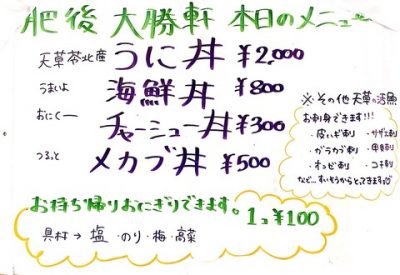 肥後 大勝軒 本日のメニュー
天草苓北産 うに丼 ¥2,000
うまいよ 海鮮丼 ¥800
おにくー チャーシュー丼 ¥300
つるっと メカブ丼 ¥500
※その他 天草の活魚
お刺身できます!!!
・皮ハギ刺 ・サザエ刺
・ガラカブ刺 ・甲イカ刺
・オコゼ刺 ・コチ刺
など…すいそうからとってきます
お持ち帰りおにぎりできます。1コ ¥100
具材→ 塩・のり・梅・高菜